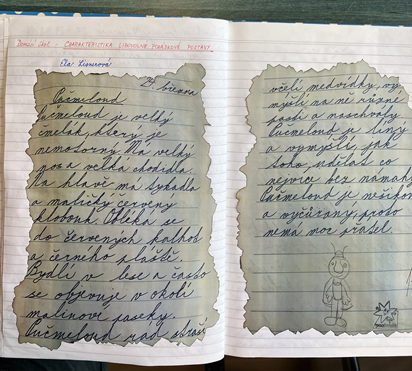 Domácí úkol - CHARAKTERISTIKA LIBOVOLNÉ POHÁDKOVÉ POSTAVY
Ela Lisnerová
25. března
Čučmeloud
Čučmeloud je velký
čmelák, který je
nemotorný. Má velký
nos a velká chodidla.
Na hlavě má tykadla
a maličký červený
klobouk. Obléká se
do červených kalhot
a černého pláště.
Bydlí v lese a často
se objevuje v okolí
malinové paseky.
Čučmeloud rád straší
včelí medvídky, vy-
mýšlí na ně různé
pasti a naschvály.
Čučmeloud je líný
a vymýšlí, jak
toho udělat co
nejvíce bez námahy.
Čučmeloud je nešikovný
a vyčůraný, proto
nemá moc přátel.